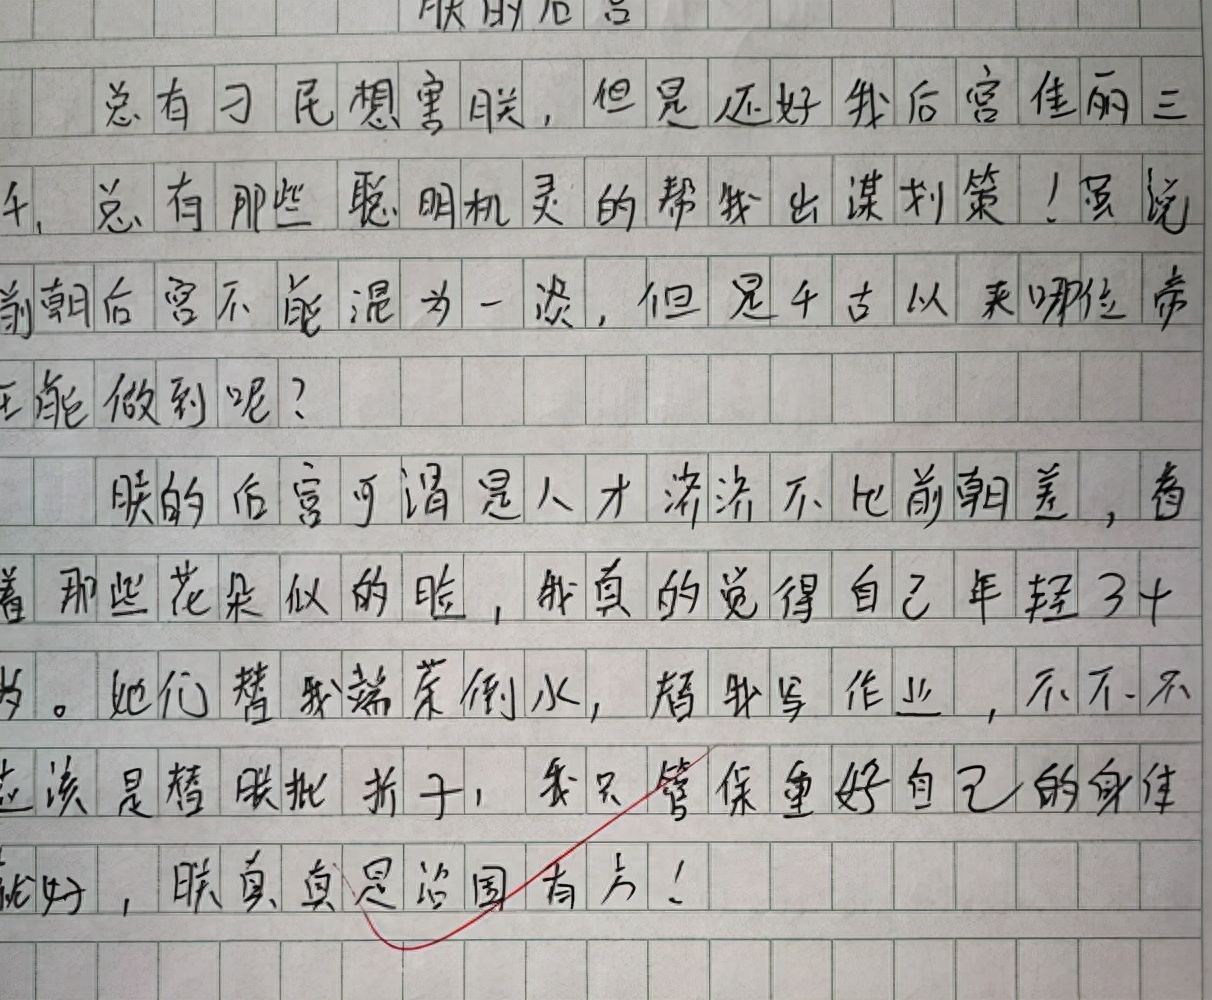 朕的后宫
总有刁民想害朕，但是还好我后宫佳丽三
千，总有那些聪明机灵的帮我出谋划策！虽说
前朝后宫不能混为一淡，但是千古以来哪位帝
王能做到呢？
朕的后宫可谓是人才济济不比前朝差，看
着那些花朵似的脸，我真的觉得自己年轻了十
岁。她们替我端茶倒水，替我写作业，不不不
应该是替朕批折子，我只管保重好自己的身体
就好，朕真真是治国有方！